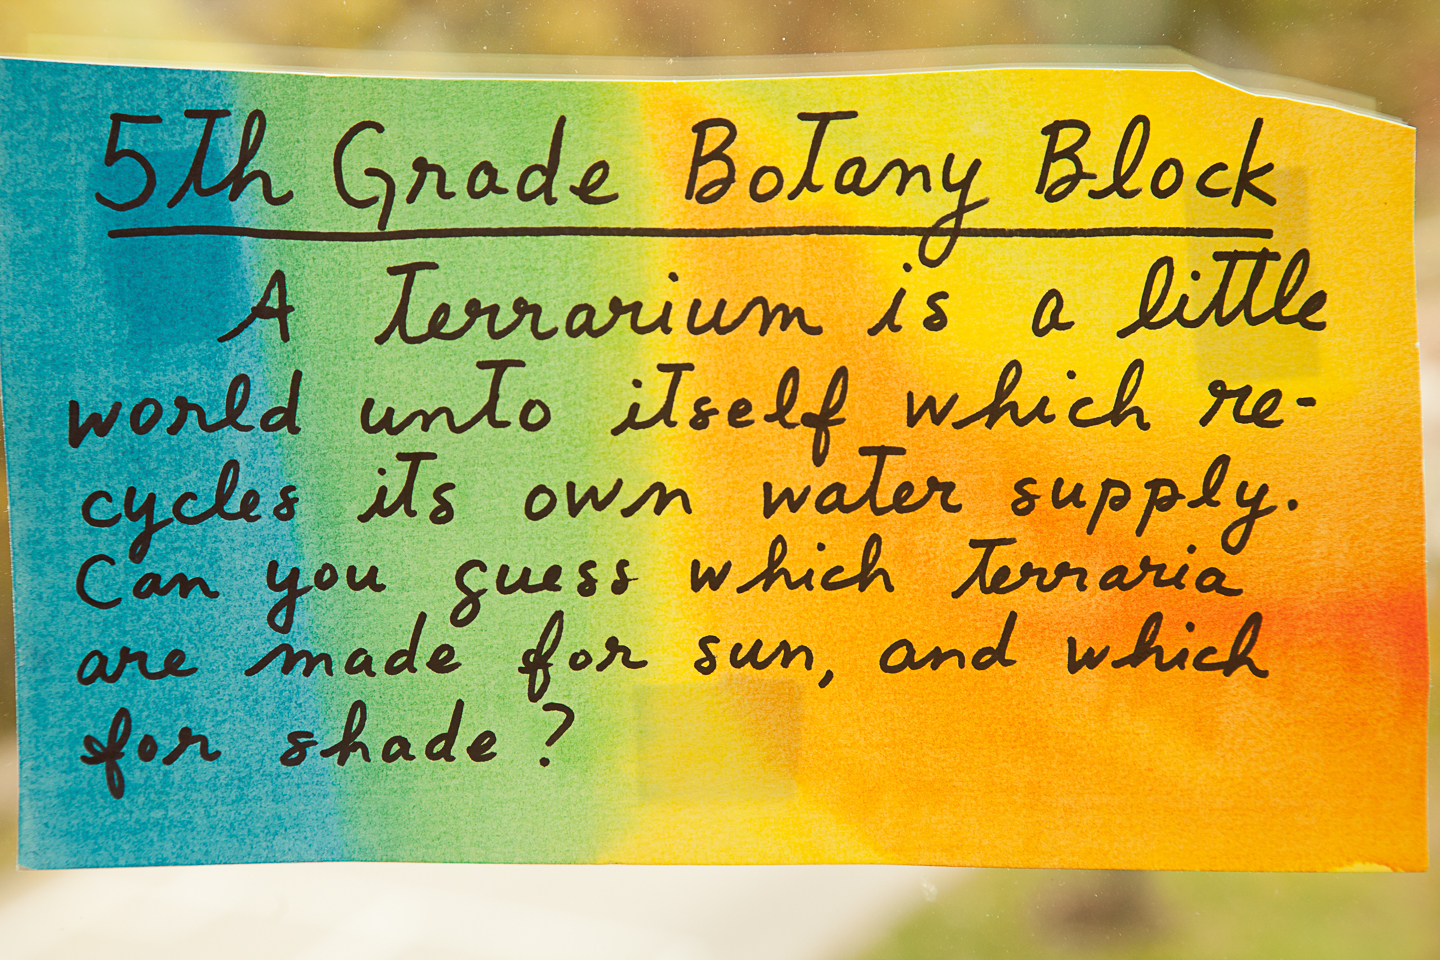 5th Grade Botany Block
A terrarium is a little
world unto itself which re-
cycles its own water supply.
Can you guess which terraria
are made for sun, and which
for shade?